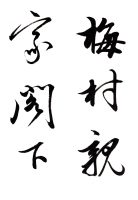 梅村親
家閣下